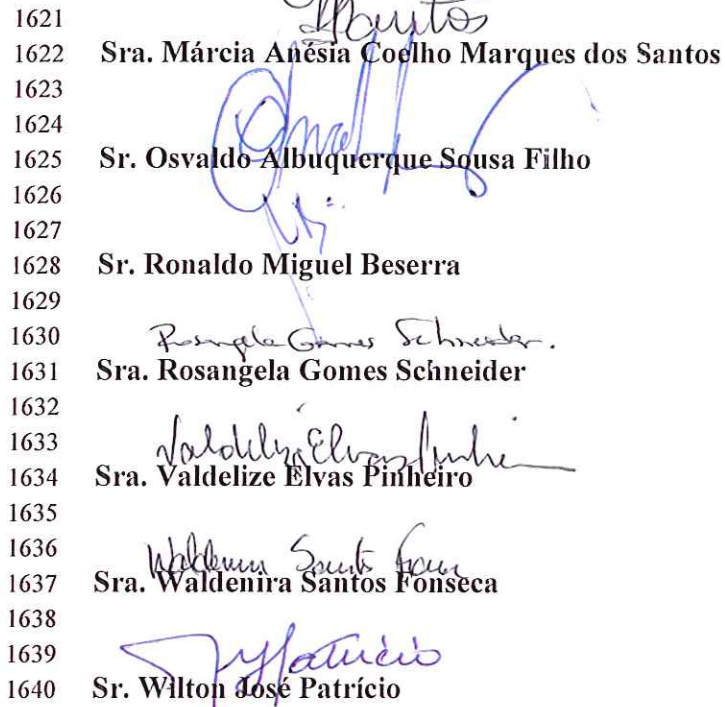 1621 Santos
1622 Sra. Márcia Anésia Coelho Marques dos Santos
1623
1624
1625 Sr. Osvaldo Albuquerque Sousa Filho
1626
1627
1628 Sr. Ronaldo Miguel Beserra
1629
1630 Rosangela Gomes Schneider.
1631 Sra. Rosangela Gomes Schneider
1632
1633 Valdelize Elvas Pinheiro
1634 Sra. Valdelize Elvas Pinheiro
1635
1636 Santos
1637 Sra. Waldenira Santos Fonseca
1638
1639 Patrício
1640 Sr. Wilton José Patrício